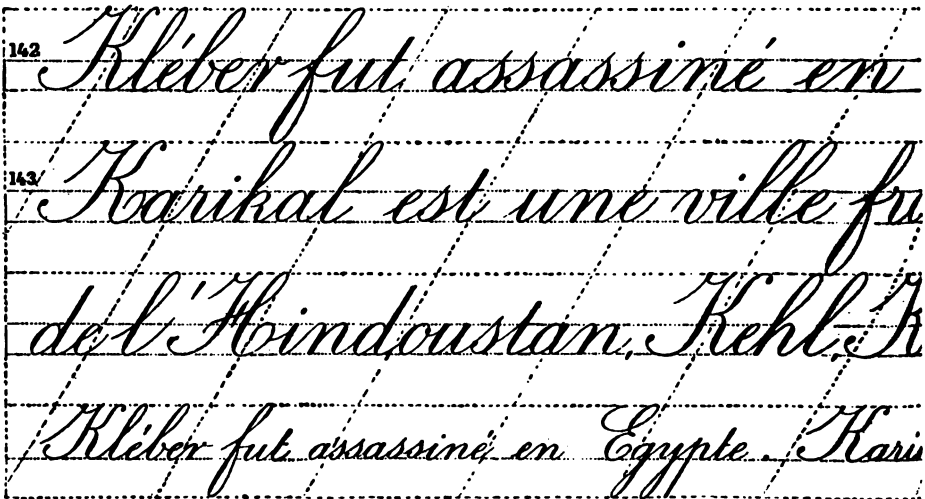 142 Kléber fut assassiné en
143 Karikal est une ville fr
de l'Hindoustan, Kehl, K
Kléber fut assassiné en Egypte. Kari